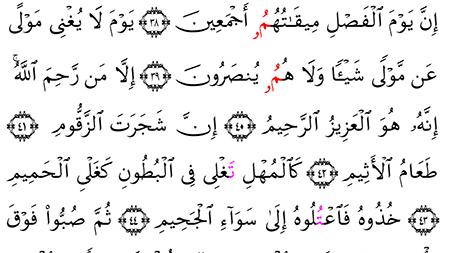 إِنَّ يَوْمَ ٱلْفَصْلِ مِيقَٰتُهُمُۥ أَجْمَعِينَ ٣٨ يَوْمَ لَا يُغْنِى مَوْلًى
عَن مَّوْلًى شَيْـًٔا وَلَا هُمُۥ يُنصَرُونَ ٣٩ إِلَّا مَن رَّحِمَ ٱللَّهُۚ
إِنَّهُۥ هُوَ ٱلْعَزِيزُ ٱلرَّحِيمُ ٤٠ إِنَّ شَجَرَتَ ٱلزَّقُّومِ ٤١
طَعَامُ ٱلْأَثِيمِ ٤٢ كَٱلْمُهْلِ تَغْلِى فِى ٱلْبُطُونِ كَغَلْىِ ٱلْحَمِيمِ
٤٣ خُذُوهُ فَٱعْتُلُوهُ إِلَىٰ سَوَآءِ ٱلْجَحِيمِ ٤٤ ثُمَّ صُبُّوا۟ فَوْقَ